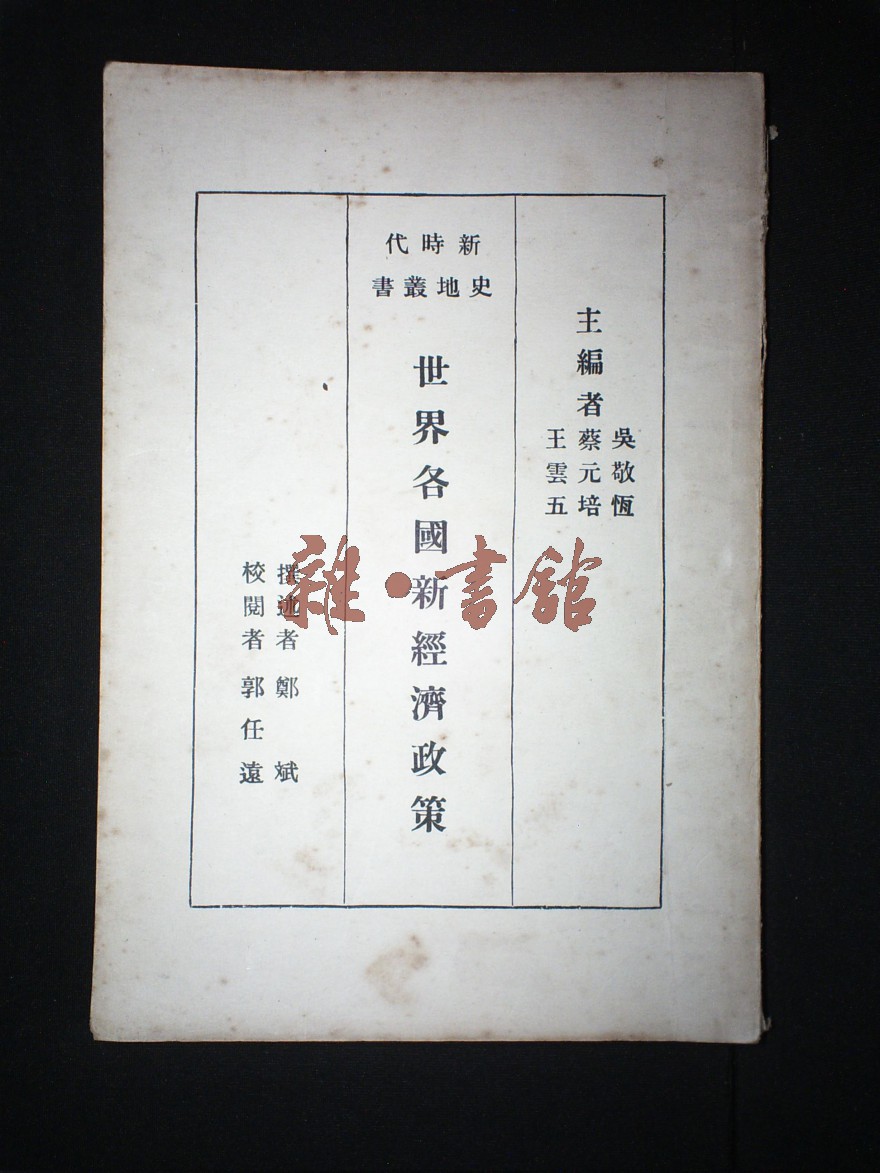 主編者
吳敬恆
蔡元培
王雲五
新時代
史地叢書
世界各國新經濟政策
撰述者 鄭斌
校閱者 郭任遠
雜·書館